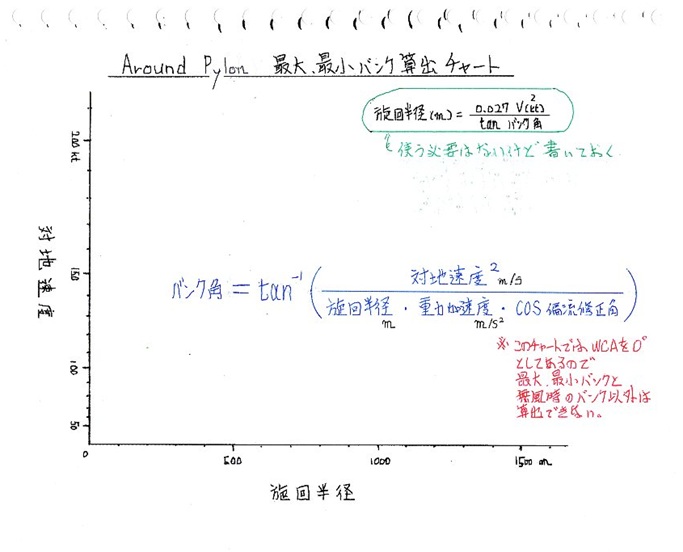 Around Pylon 最大、最小バンク算出チャート
旋回半径(m) = 0.027 V(kt)² / tan バンク角
使う必要はないけど書いておく
200 kt
対地速度
150
100
50
バンク角 = tan⁻¹ ( 対地速度² m/s / 旋回半径 m ・ 重力加速度 m/s² ・ COS 偏流修正角 )
※ このチャートでは、WCAを0°
としてあるので
最大、最小バンクと
無風時のバンク以外は
算出できない。
0 500 1000 1500 m
旋回半径